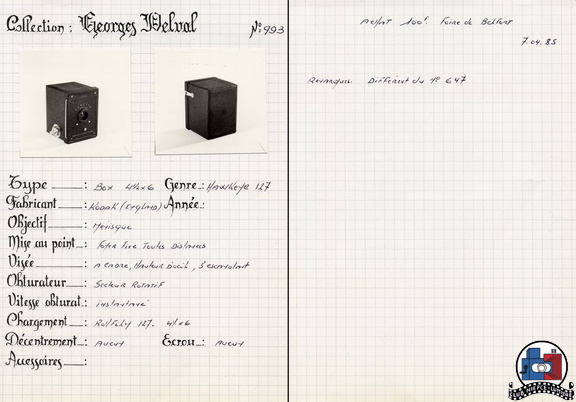 Collection: Georges Delval N° 993
Type : Box 4½x6 Genre: Hawkeye 127
Fabricant : Kodak (England) Année:
Objectif : Ménisque
Mise au point : Foyer Fixe Toutes Distances
Visée : A cadre, Hauteur d'oeil, s'escamotant
Obturateur : Secteur Rotatif
Vitesse obturat. : instantané
Chargement : RollFilm 127. 4½x6
Décentrement : Aucun Ecrou : Aucun
Accessoires :
Achat 100f. Foire de Belfort
7.04.85
Remarque Différent du N° 647